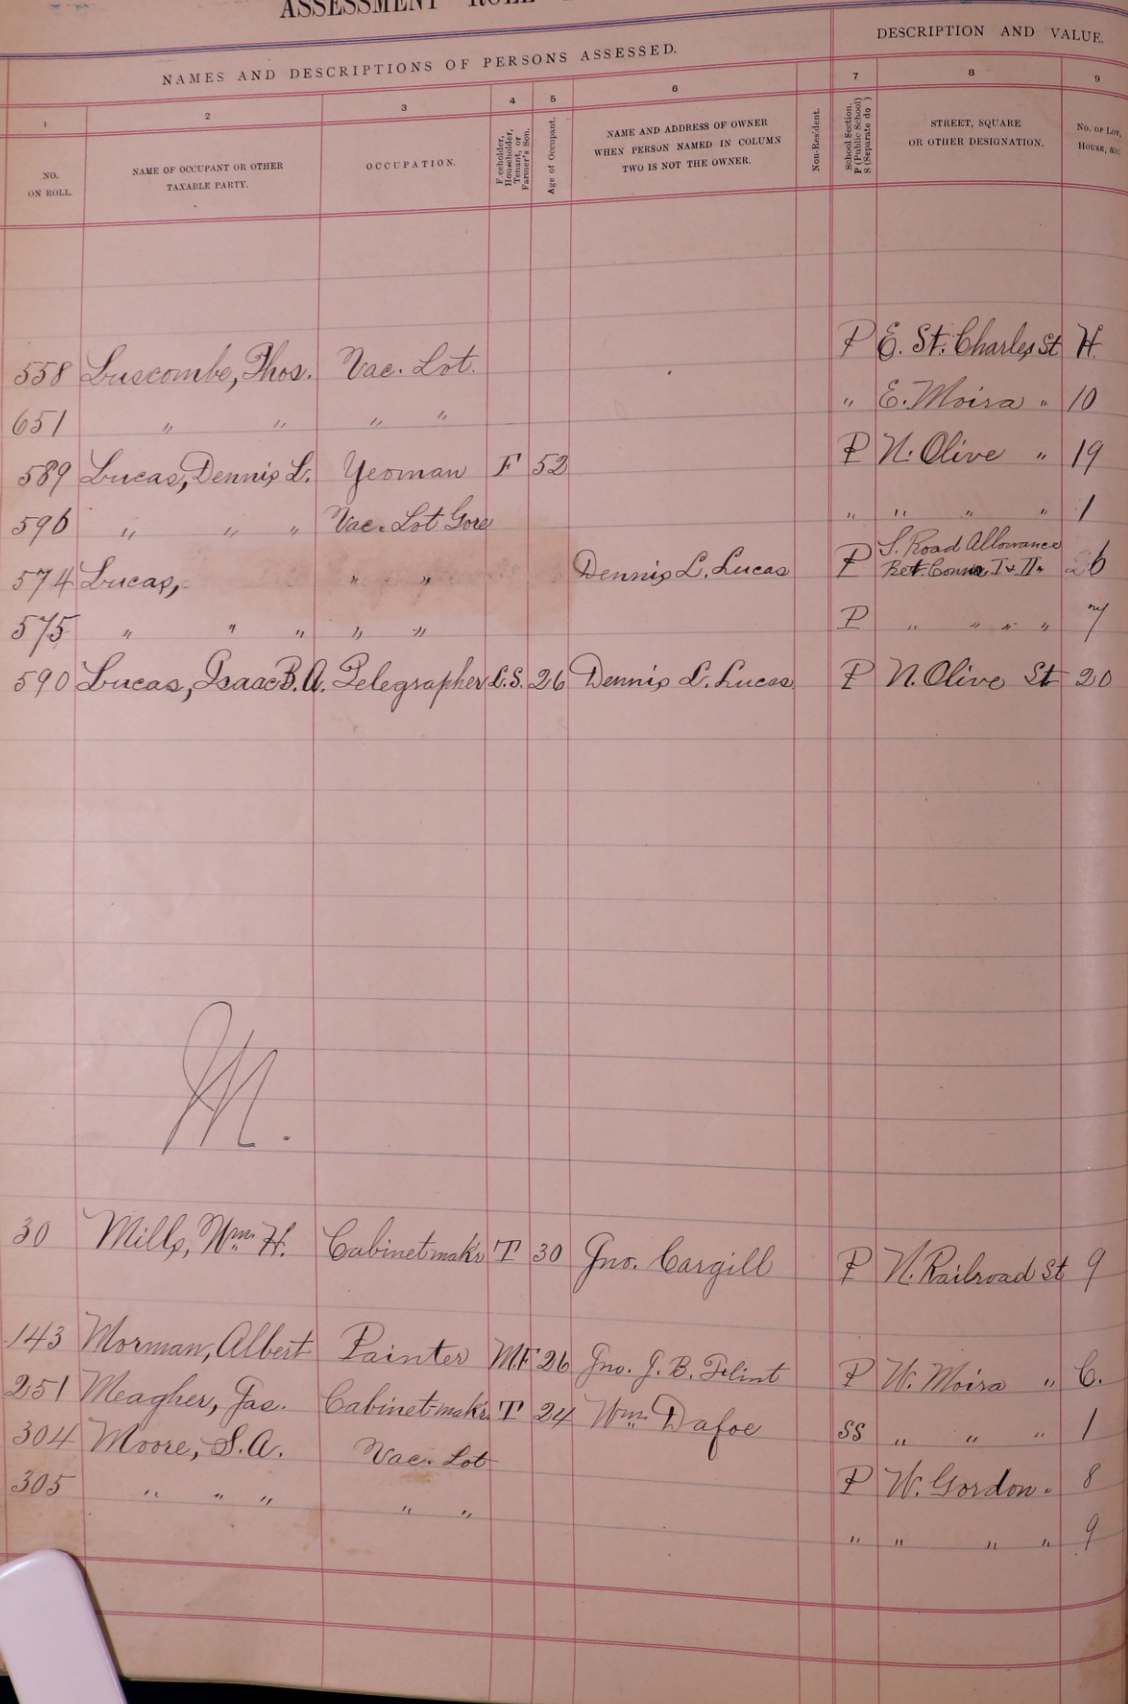 ASSESSMENT ROLL
NAMES AND DESCRIPTIONS OF PERSONS ASSESSED.
DESCRIPTION AND VALUE.
1 2 3 4 5 6 7 8 9
NO. ON ROLL.
NAME OF OCCUPANT OR OTHER TAXABLE PARTY.
OCCUPATION.
Freeholder, Householder, Tenant, or Farmer's Son.
Age of Occupant.
NAME AND ADDRESS OF OWNER WHEN PERSON NAMED IN COLUMN TWO IS NOT THE OWNER.
Non-Resident.
School Section. P (Public School) S (Separate do )
STREET, SQUARE OR OTHER DESIGNATION.
No. of Lot, House, &c.
558 Luscombe, Thos. Vac. Lot. P E. St. Charles St H.
651 " " " " " E. Moira " 10
589 Lucas, Dennis L. Yeoman F 52 P N. Olive " 19
596 " " " Vac. Lot Gore " " " " 1
574 Lucas, " " Dennis L. Lucas P S. Road Allowance Bet. Cons. I & II. 26
575 " " " " " P " " " " 7
590 Lucas, Isaac B. A. Telegrapher L.S. 26 Dennis L. Lucas P N. Olive St 20
M.
30 Mills, Wm. H. Cabinetmak'r T 30 Jno. Cargill P N. Railroad St 9
143 Morman, Albert Painter M.F 26 Jno. J. B. Flint P W. Moira " C.
251 Meagher, Jas. Cabinet-mak'r T 24 Wm. Dafoe SS " " " 1
304 Moore, S. A. Vac. Lot P W. Gordon " 8
305 " " " " " " " " " 9